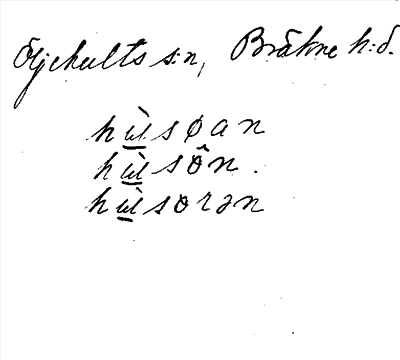 Öljehults s:n, Bräkne h:d.
hù̲söan
hù̲sôn.
hù̲sorən